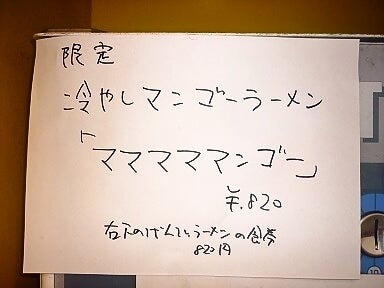 限定
冷やしマンゴーラーメン
「ママママママンゴー」
¥.820
右下のげんていラーメンの食券
820円